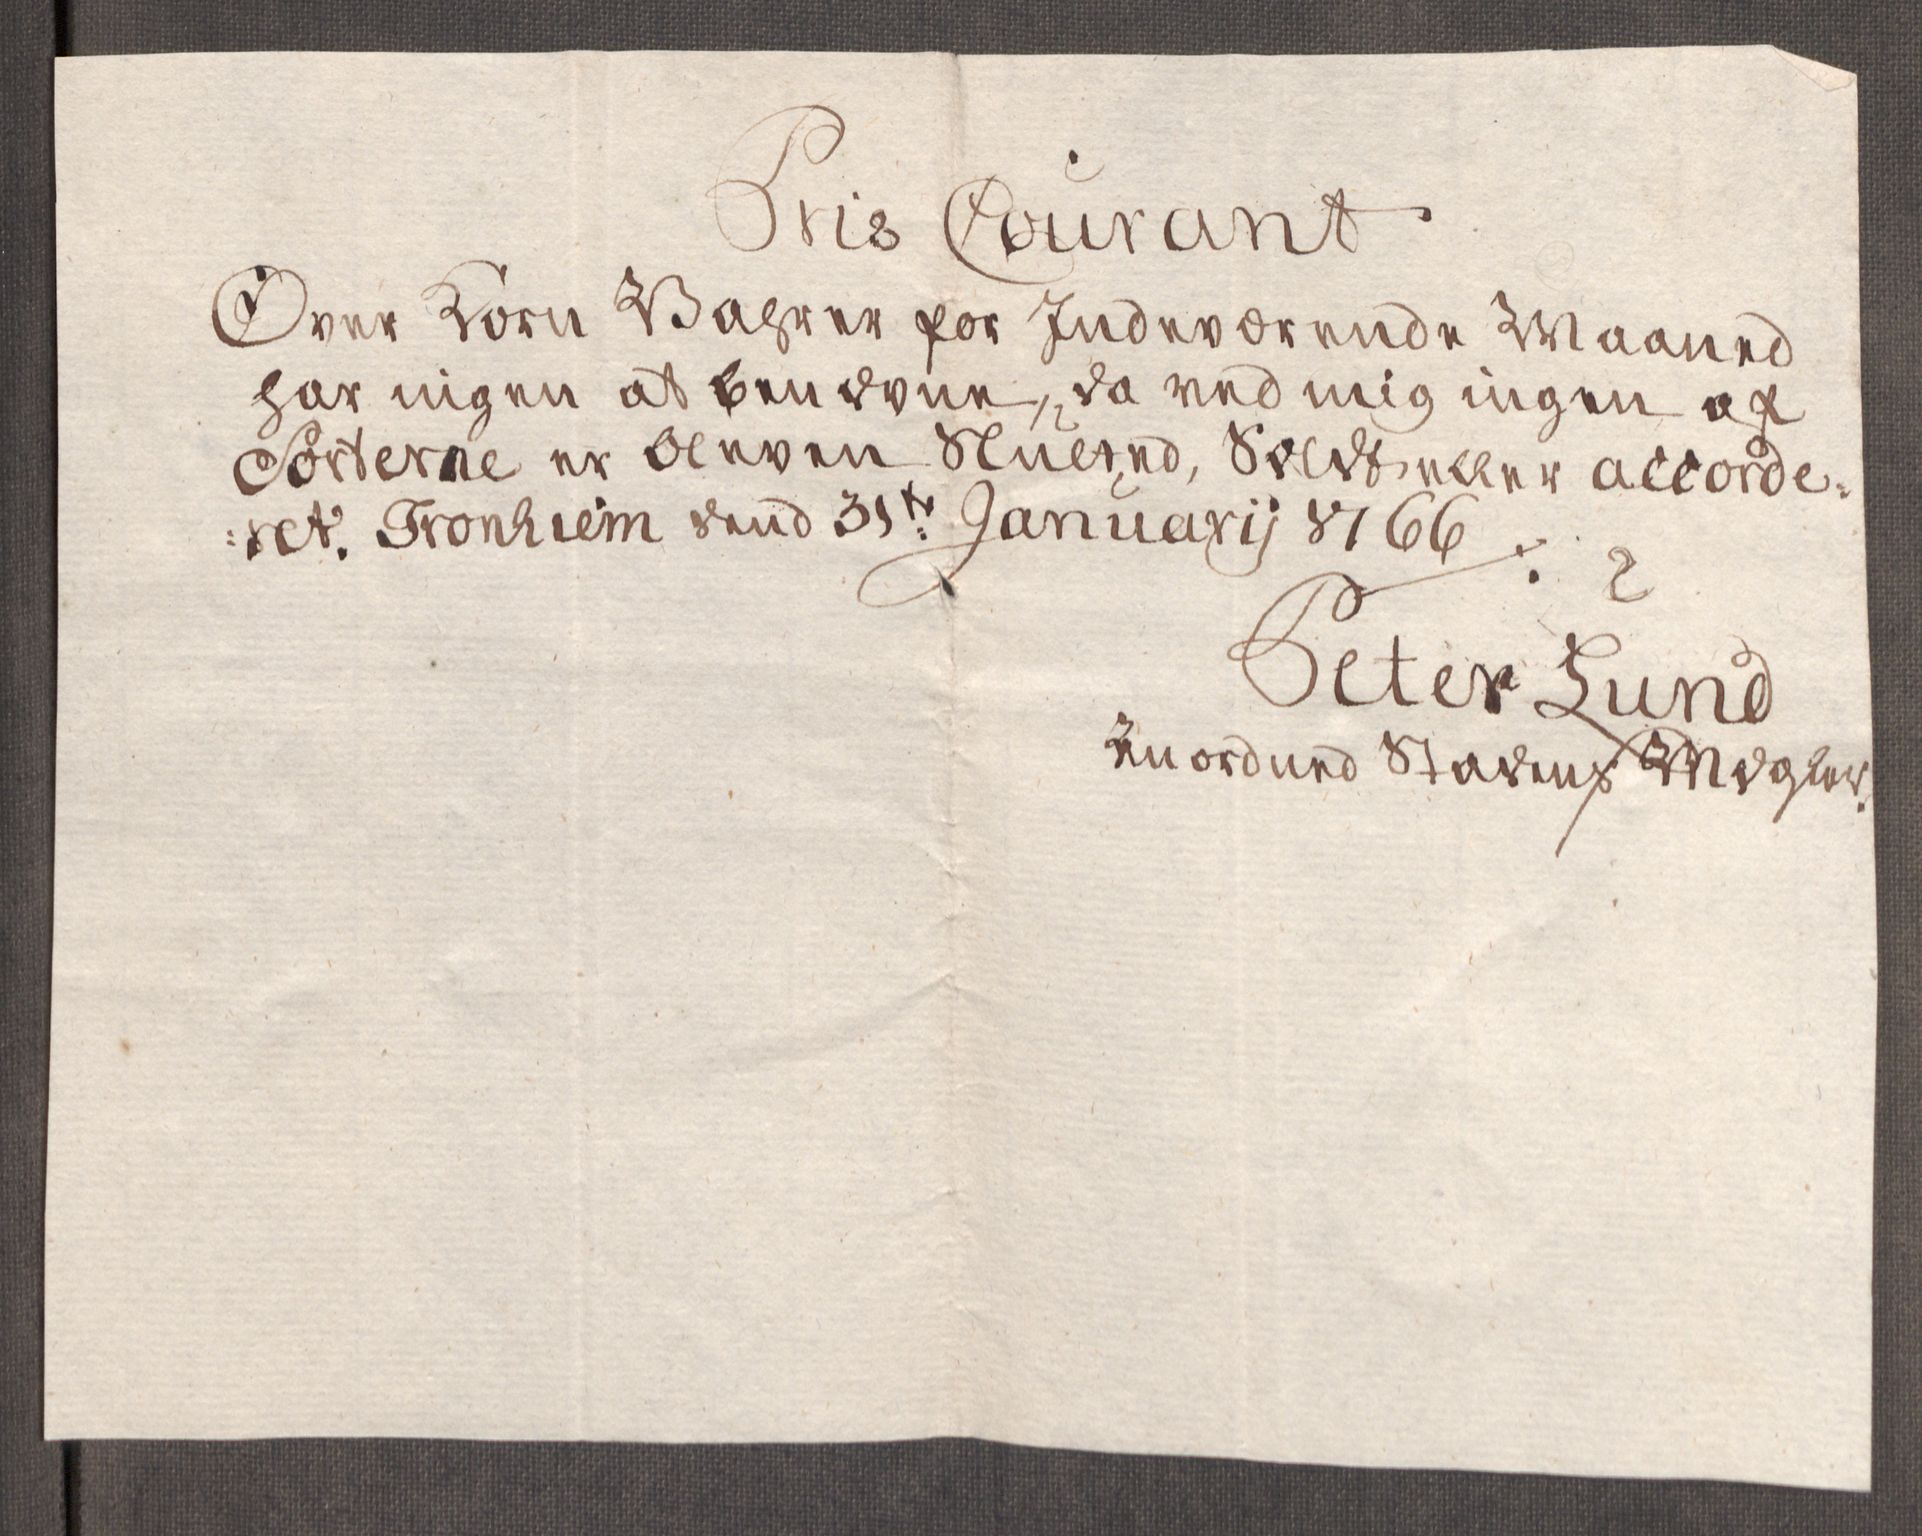 Pris Courant
Over Korn Vahrer for Indeværende Maaned
har ingen at benævne, da ved mig ingen af
Sorterne er bleven Slutted, Sældt eller accorde-
:ret. Tronhiem dend 31te Januarij 1766
Peter Lund
Anordned Stadens Mægler.